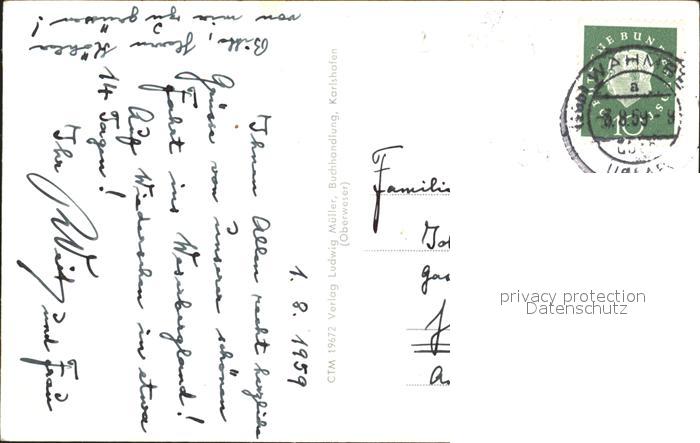 1. 8. 1959
Ihnen Allen recht herzliche
Grüße von unserer schönen
Fahrt ins Weserbergland!
Auf Wiedersehen in etwa
14 Tagen!
Ihr
und Frau
Bitte, Herrn Köhler
von mir zu grüßen!
CTM 19672 Verlag Ludwig Müller, Buchhandlung, Karlshafen
(Oberweser)
Familie
DEUTSCHE BUNDESPOST
10
WAHMBECK
a
8.59
privacy protection
Datenschutz